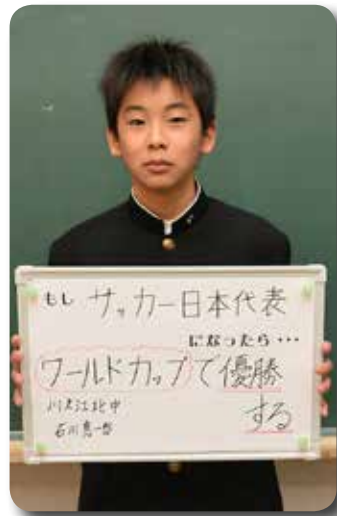 もし サッカー日本代表
になったら…
ワールドカップで優勝
する
川之江北中
石川